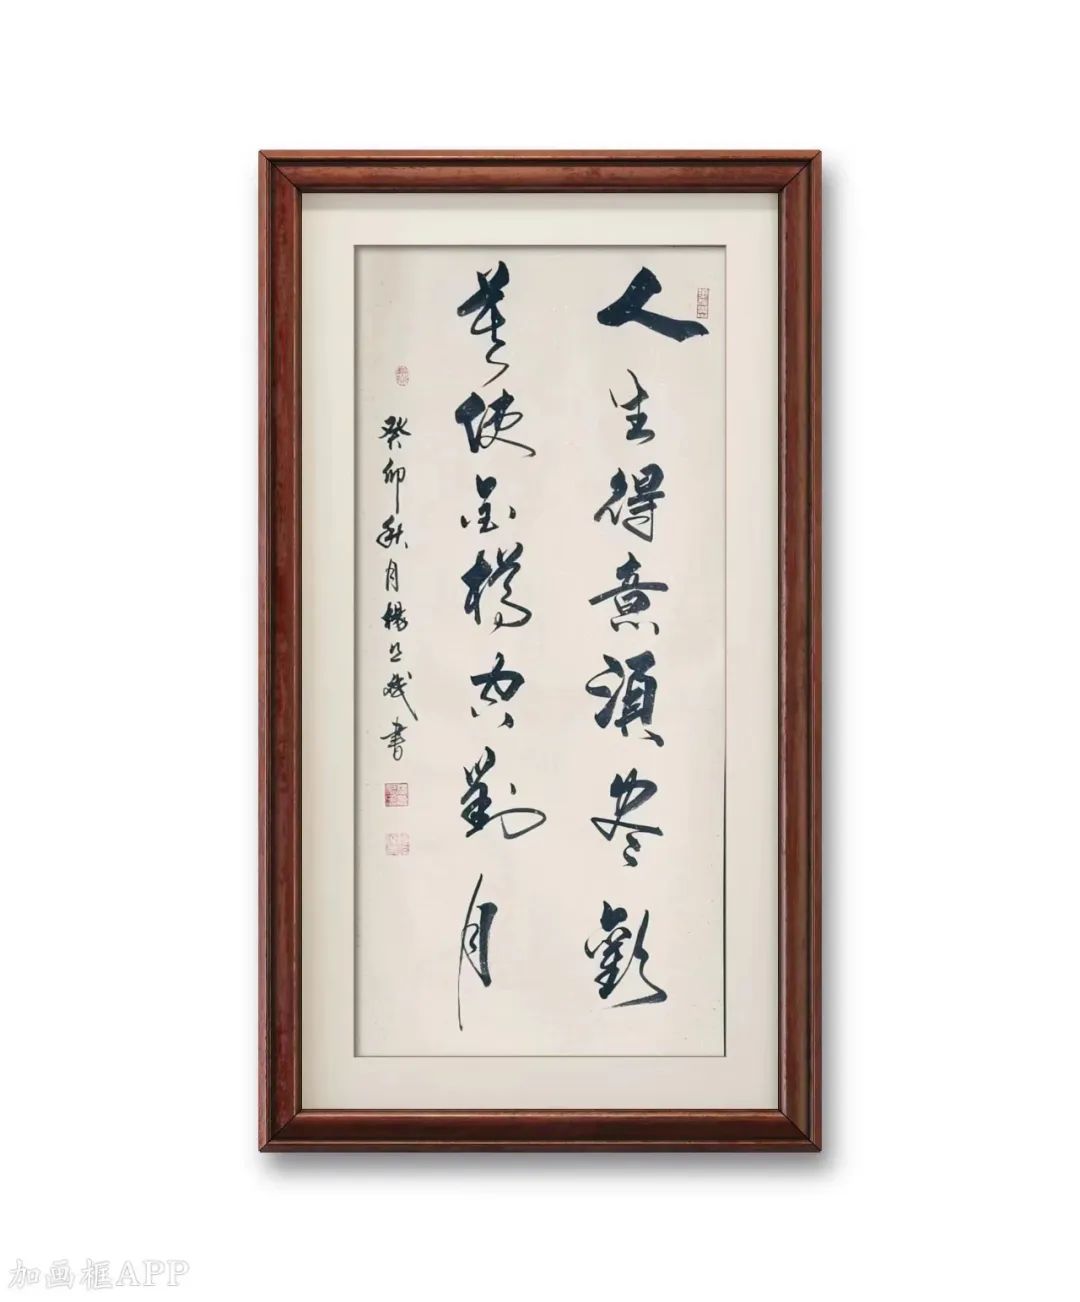 人生得意须尽歡
莫使金樽空對月
癸卯秋月楊立武書
加画框APP